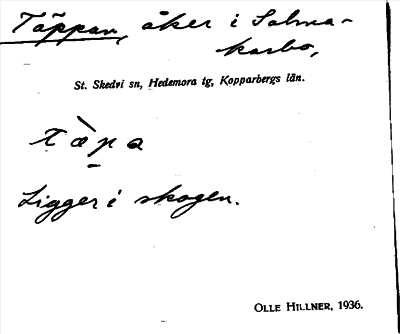 Täppan, åker i Solma-
karbo,
St. Skedvi sn, Hedemora tg, Kopparbergs län.
tæ̀p̠a
Ligger i skogen.
OLLE HILLNER, 1936.